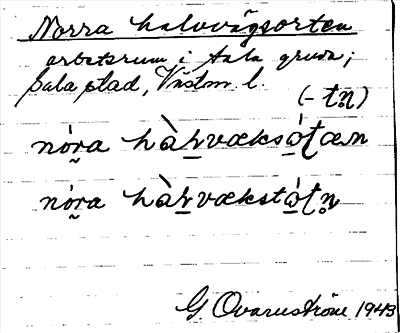 Norra halvvägsorten
arbetsrum i Sala gruva;
Sala stad, Västm. l.
(-tn̥)
nó̰ra hàḻvæksó̱ʈæn
nó̰ra hàḻvækstó̱ʈn̥
G. Qvarnström 1943